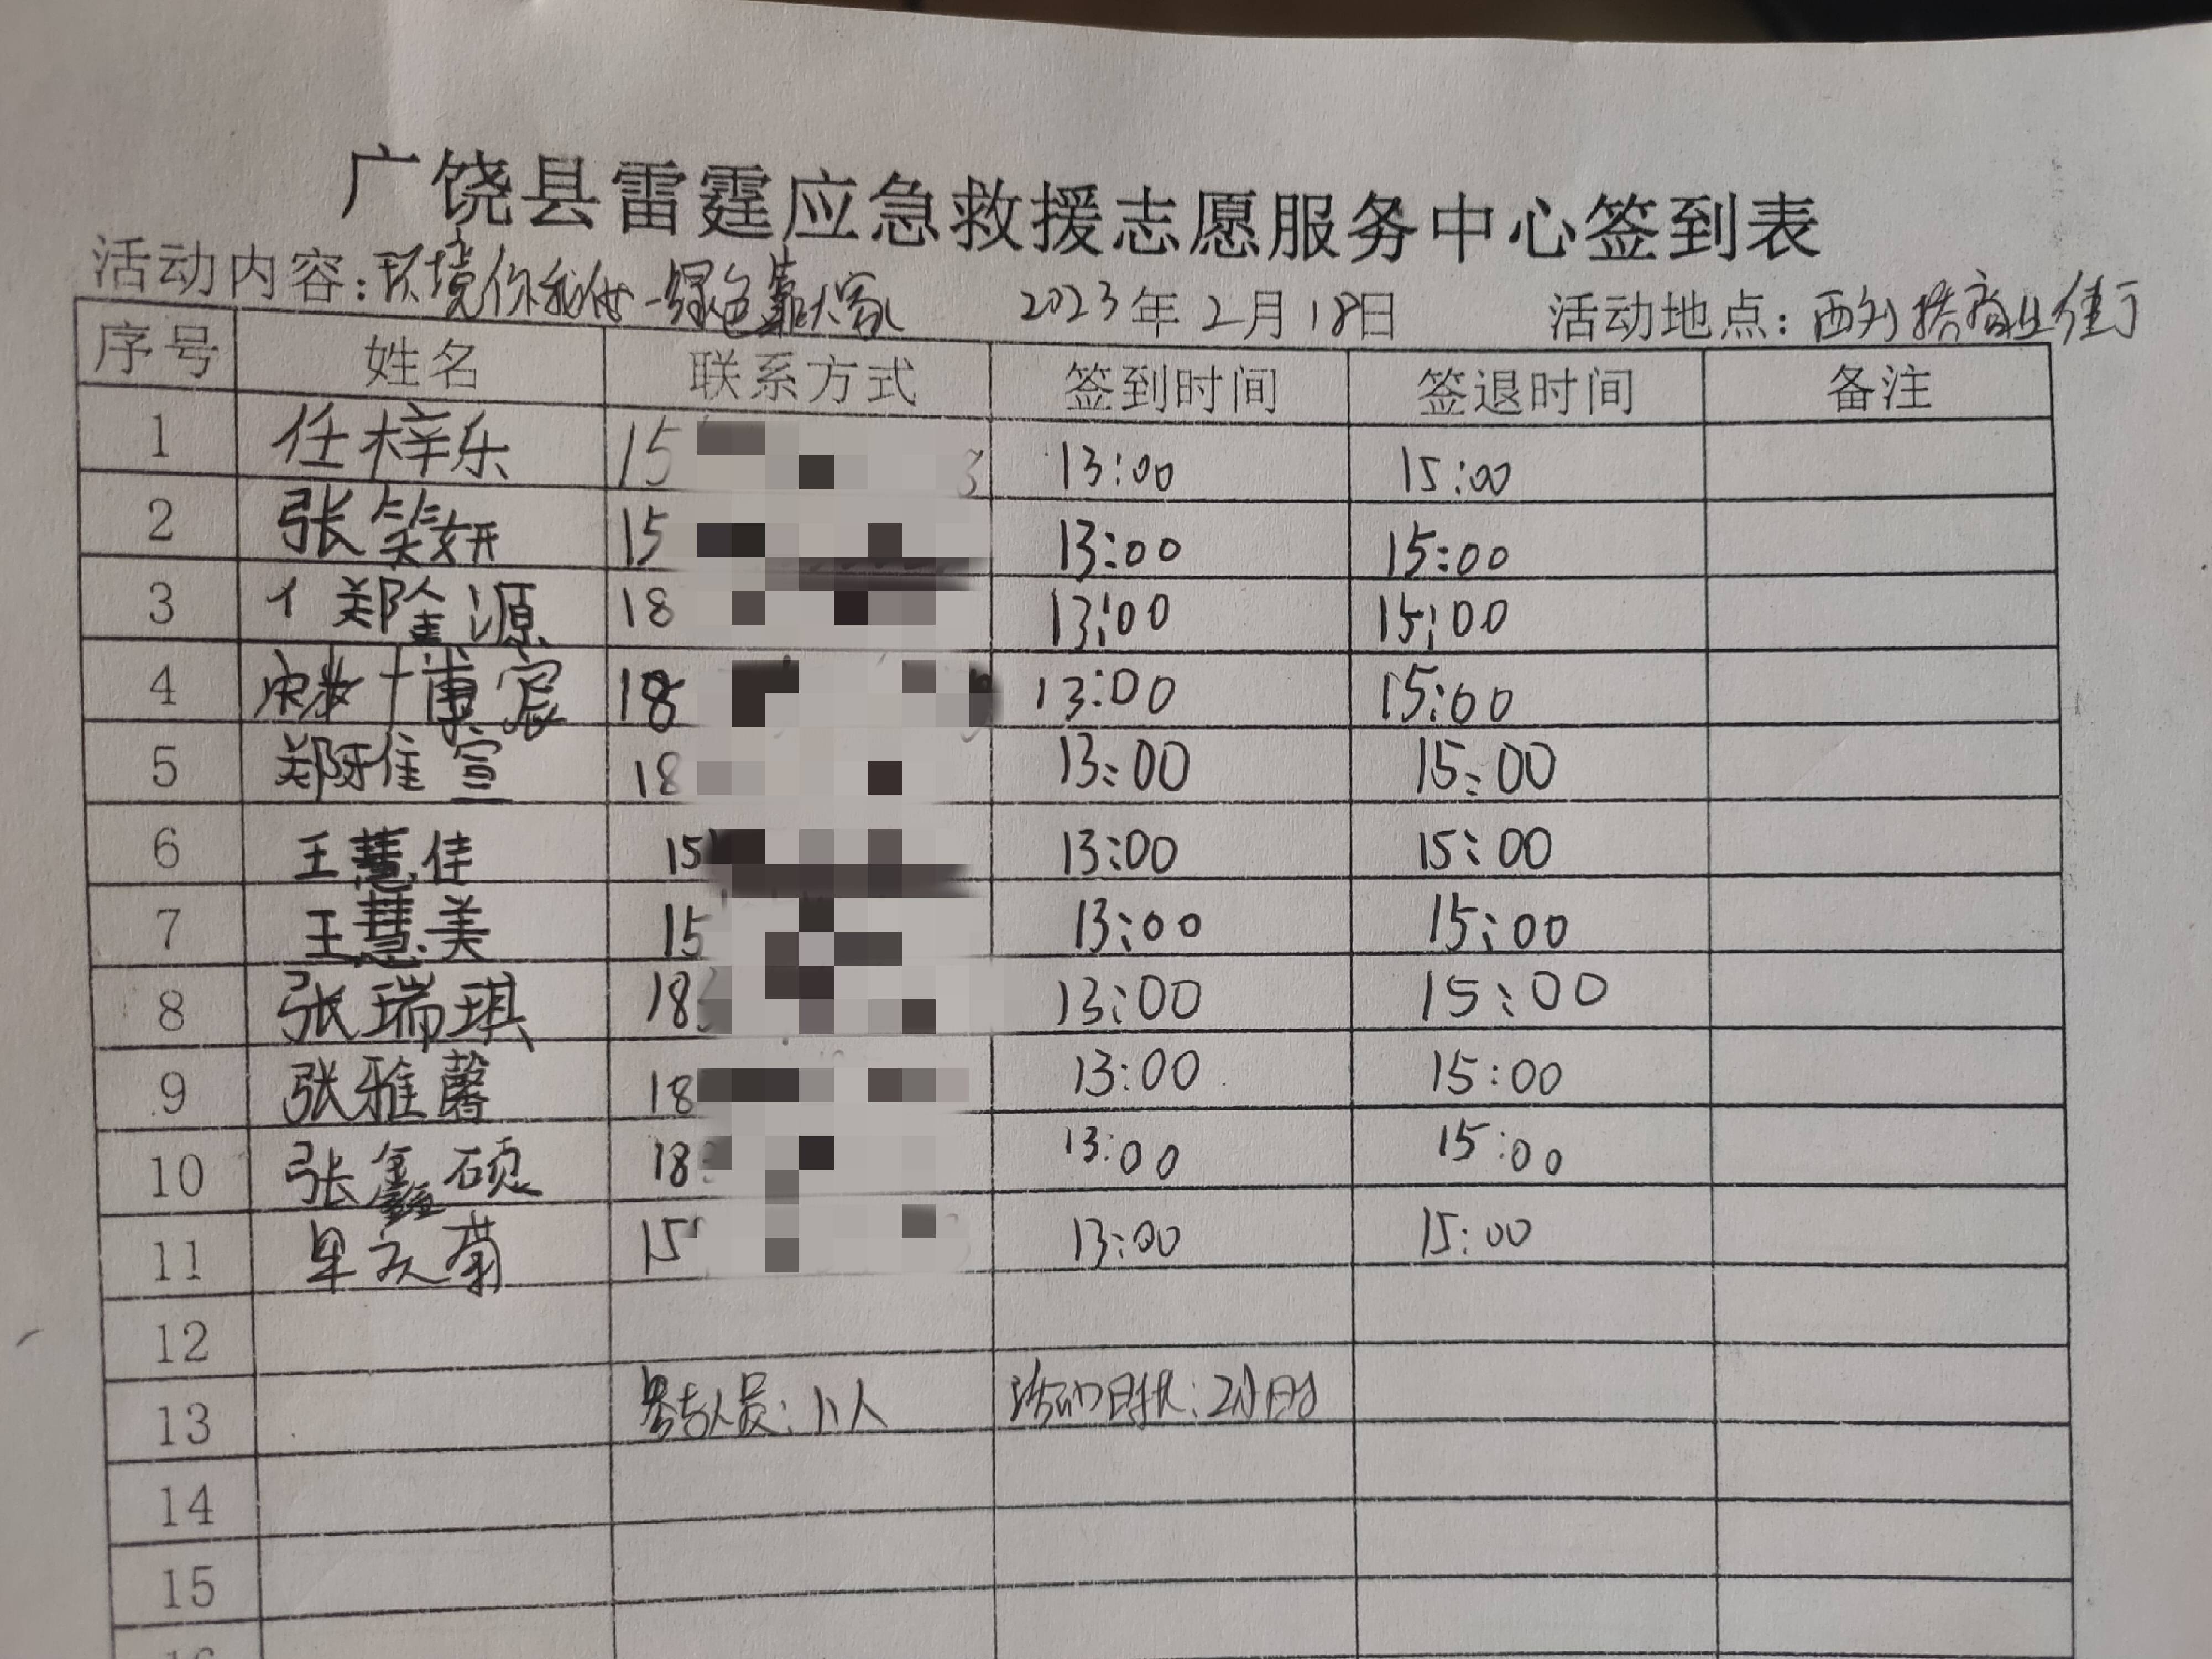 广饶县雷霆应急救援志愿服务中心签到表
活动内容：环境你我他一绿色靠大家 2023年2月18日 活动地点：西刘桥商业街
序号 姓名 联系方式 签到时间 签退时间 备注
1 任梓乐 15 3 13:00 15:00
2 张笑妍 15 13:00 15:00
3 郑 源 18 13:00 15:00
4 博宸 18 13:00 15:00
5 郑雅宣 18 13:00 15:00
6 王慧佳 15 13:00 15:00
7 王慧美 15 13:00 15:00
8 张瑞琪 183 13:00 15:00
9 张雅馨 18 13:00 15:00
10 张鑫硕 18 13:00 15:00
11 菊 15 13:00 15:00
12
13 参与人员：11人 活动时长：2小时
14
15
16